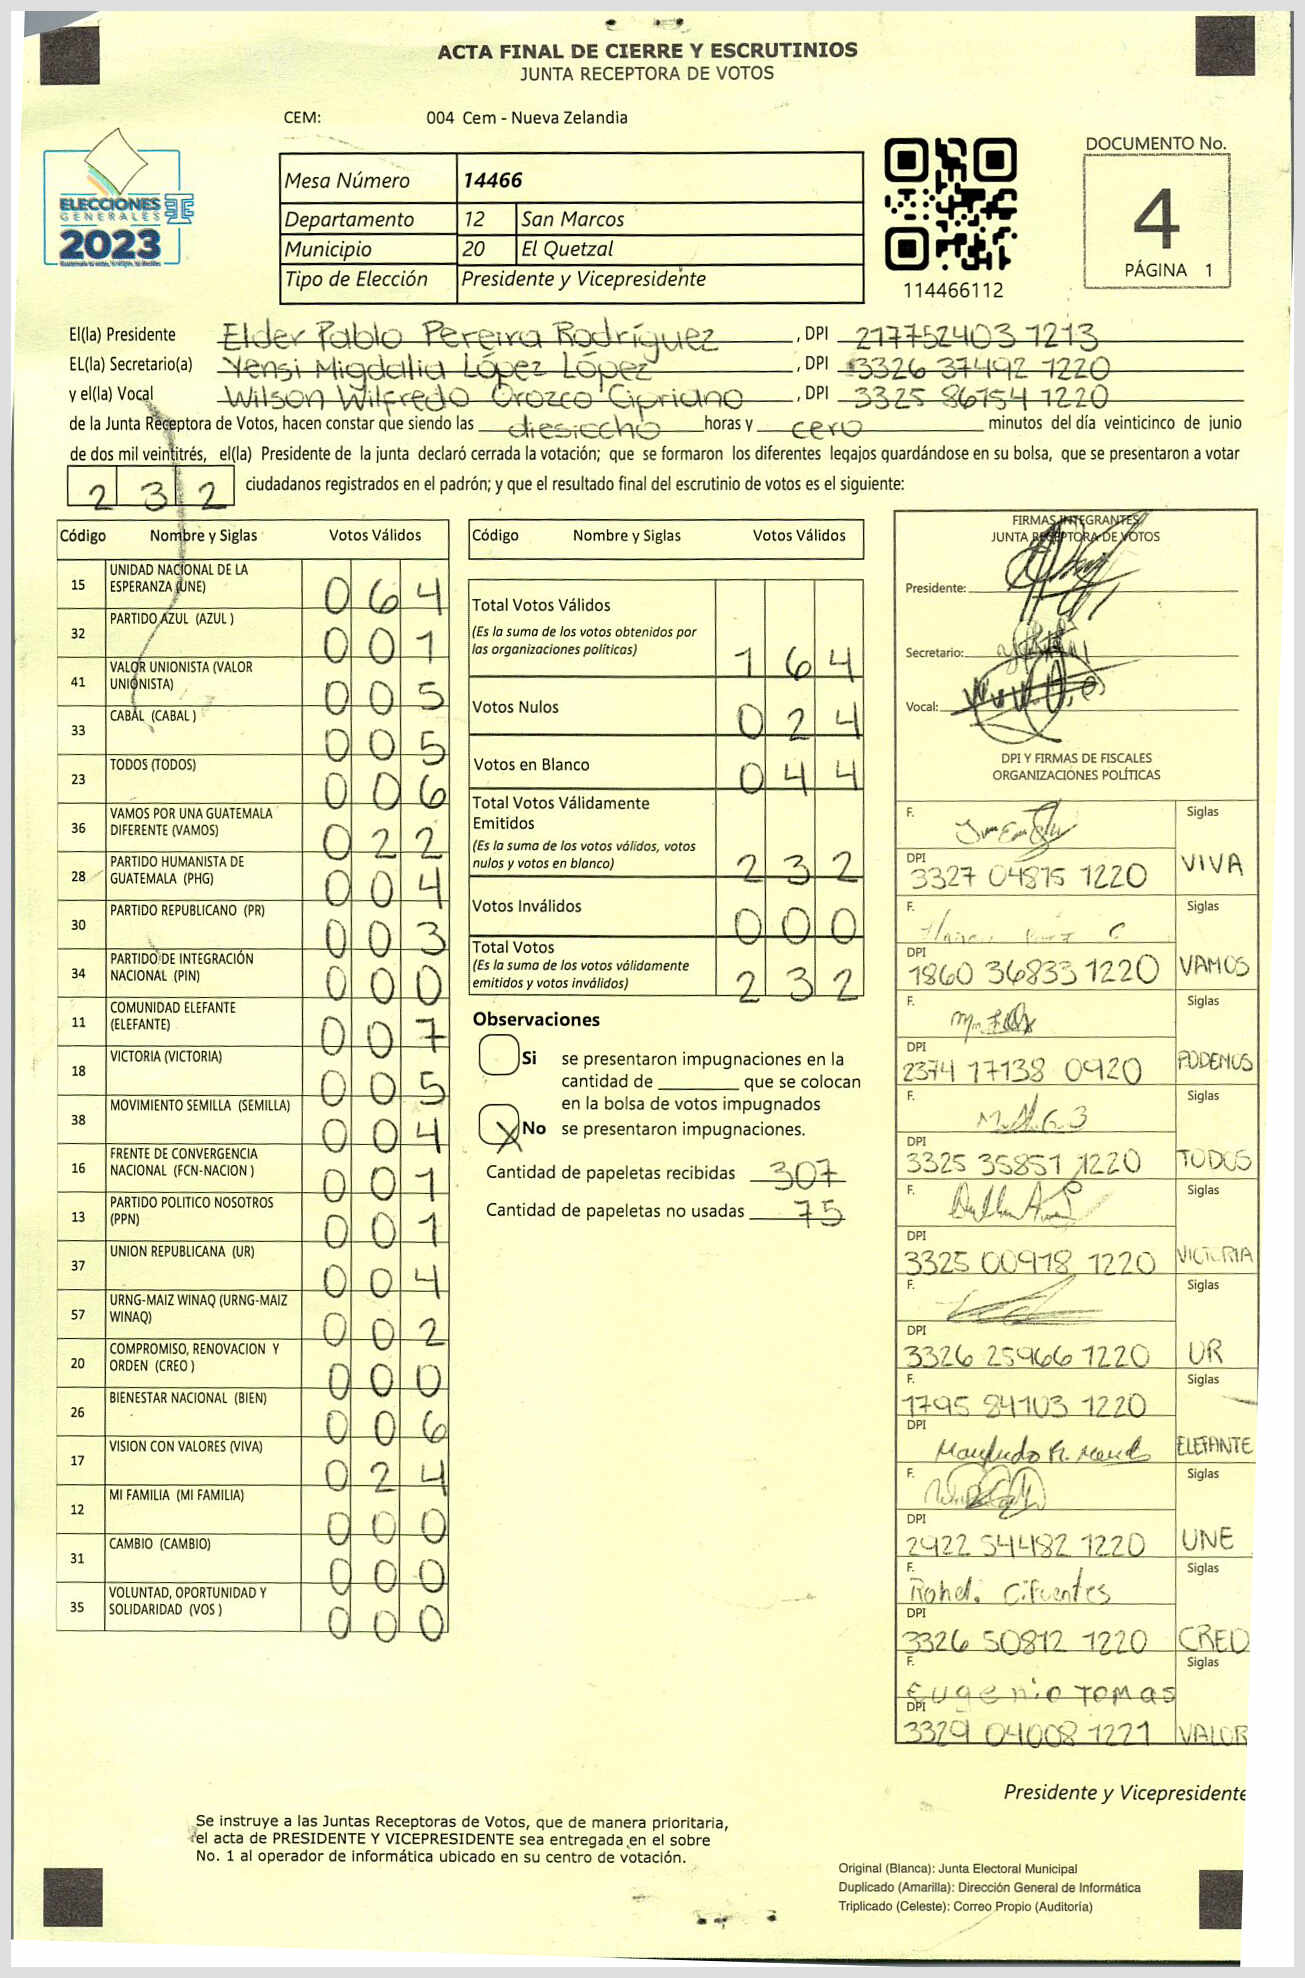 ACTA FINAL DE CIERRE Y ESCRUTINIOS
JUNTA RECEPTORA DE VOTOS
CEM: 004 Cem - Nueva Zelandia
ELECCIONES
GENERALES
2023
Mesa Número 14466
Departamento 12 San Marcos
Municipio 20 El Quetzal
Tipo de Elección Presidente y Vicepresidente
114466112
DOCUMENTO No.
4
PÁGINA 1
El(la) Presidente Elder Pablo Pereira Rodríguez, DPI 217752403 1213
EL(la) Secretario(a) Yensi Migdalia López López, DPI 3326 37492 1220
y el(la) Vocal Wilson Wilfredo Orozco Cipriano, DPI 3325 86754 1220
de la Junta Receptora de Votos, hacen constar que siendo las diesiocho horas y cero minutos del día veinticinco de junio
de dos mil veintitrés, el(la) Presidente de la junta declaró cerrada la votación; que se formaron los diferentes legajos guardándose en su bolsa, que se presentaron a votar
232 ciudadanos registrados en el padrón; y que el resultado final del escrutinio de votos es el siguiente:
Código Nombre y Siglas Votos Válidos
15 UNIDAD NACIONAL DE LA ESPERANZA (UNE) 064
32 PARTIDO AZUL (AZUL ) 001
41 VALOR UNIONISTA (VALOR UNIONISTA) 005
33 CABAL (CABAL ) 005
23 TODOS (TODOS) 006
36 VAMOS POR UNA GUATEMALA DIFERENTE (VAMOS) 022
28 PARTIDO HUMANISTA DE GUATEMALA (PHG) 004
30 PARTIDO REPUBLICANO (PR) 003
34 PARTIDO DE INTEGRACIÓN NACIONAL (PIN) 000
11 COMUNIDAD ELEFANTE (ELEFANTE) 007
18 VICTORIA (VICTORIA) 005
38 MOVIMIENTO SEMILLA (SEMILLA) 004
16 FRENTE DE CONVERGENCIA NACIONAL (FCN-NACION ) 001
13 PARTIDO POLITICO NOSOTROS (PPN) 001
37 UNION REPUBLICANA (UR) 004
57 URNG-MAIZ WINAQ (URNG-MAIZ WINAQ) 002
20 COMPROMISO, RENOVACION Y ORDEN (CREO ) 000
26 BIENESTAR NACIONAL (BIEN) 006
17 VISION CON VALORES (VIVA) 024
12 MI FAMILIA (MI FAMILIA) 000
31 CAMBIO (CAMBIO) 000
35 VOLUNTAD, OPORTUNIDAD Y SOLIDARIDAD (VOS ) 000
Código Nombre y Siglas Votos Válidos
Total Votos Válidos
(Es la suma de los votos obtenidos por
las organizaciones políticas) 164
Votos Nulos 024
Votos en Blanco 044
Total Votos Válidamente
Emitidos
(Es la suma de los votos válidos, votos
nulos y votos en blanco) 232
Votos Inválidos 000
Total Votos
(Es la suma de los votos válidamente
emitidos y votos inválidos) 232
Observaciones
Si se presentaron impugnaciones en la
cantidad de ________ que se colocan
en la bolsa de votos impugnados
X No se presentaron impugnaciones.
Cantidad de papeletas recibidas 307
Cantidad de papeletas no usadas 75
FIRMAS INTEGRANTES
JUNTA RECEPTORA DE VOTOS
Presidente:
Secretario:
Vocal:
DPI Y FIRMAS DE FISCALES
ORGANIZACIONES POLÍTICAS
F. Siglas
DPI 3327 04875 1220 VIVA
F. Siglas
DPI 1860 36833 1220 VAMOS
F. Siglas
DPI 2374 17138 0920 PODEMOS
F. Siglas
DPI 3325 35851 1220 TODOS
F. Siglas
DPI 3325 00918 1220 VICTORIA
F. Siglas
DPI 3326 25966 1220 UR
F. 1795 84103 1220 Siglas
DPI ELEFANTE
F. Siglas
DPI 2922 54482 1220 UNE
F. Cifuentes Siglas
DPI 3326 50812 1220 CREO
F. Eugenio Tomas Siglas
DPI 3329 04008 1221 VALOR
Presidente y Vicepresidente
Se instruye a las Juntas Receptoras de Votos, que de manera prioritaria,
el acta de PRESIDENTE Y VICEPRESIDENTE sea entregada en el sobre
No. 1 al operador de informática ubicado en su centro de votación.
Original (Blanca): Junta Electoral Municipal
Duplicado (Amarilla): Dirección General de Informática
Triplicado (Celeste): Correo Propio (Auditoría)